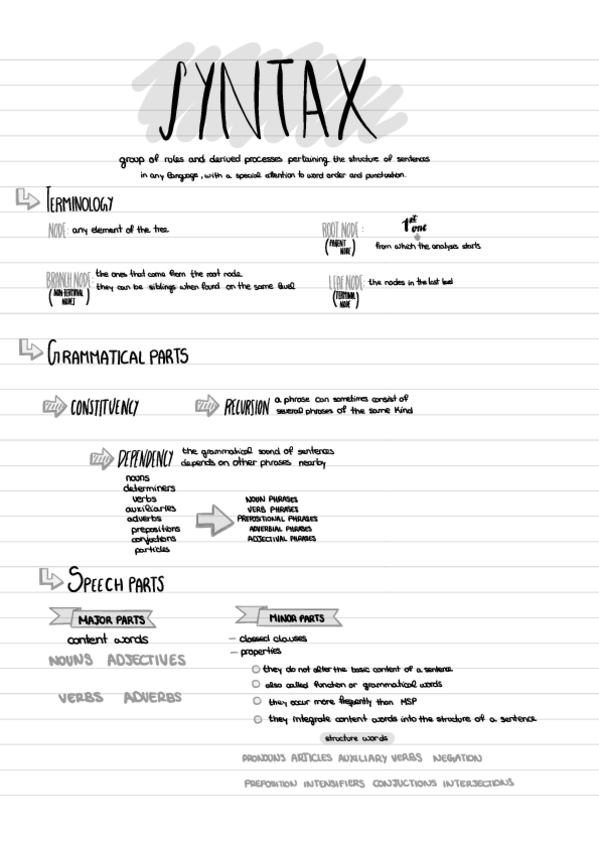 SYNTAX
group of rules and derived processes pertaining the structure of sentences
in any language, with a special attention to word order and punctuation.
TERMINOLOGY
NODE: any element of the tree.
ROOT NODE: 1st one
(PARENT NODE) from which the analysis starts
BRANCH NODE: the ones that come from the root node.
(NON-TERMINAL NODE) they can be siblings when found on the same level
LEAF NODE: the nodes in the last level
(TERMINAL NODE)
GRAMMATICAL PARTS
CONSTITUENCY
RECURSION a phrase can sometimes consist of
several phrases of the same kind
DEPENDENCY the grammatical sound of sentences
depends on other phrases nearby
nouns
determiners
verbs
auxiliaries
adverbs
prepositions
conjuctions
particles
NOUN PHRASES
VERB PHRASES
PREPOSITIONAL PHRASES
ADVERBIAL PHRASES
ADJECTIVAL PHRASES
SPEECH PARTS
MAJOR PARTS
content words
NOUNS ADJECTIVES
VERBS ADVERBS
MINOR PARTS
– classed clauses
– properties
they do not alter the basic content of a sentence
also called function or grammatical words
they occur more frequently than MSP
they integrate content words into the structure of a sentence
structure words
PRONOUNS ARTICLES AUXILIARY VERBS NEGATION
PREPOSITION INTENSIFIERS CONJUCTIONS INTERJECTIONS